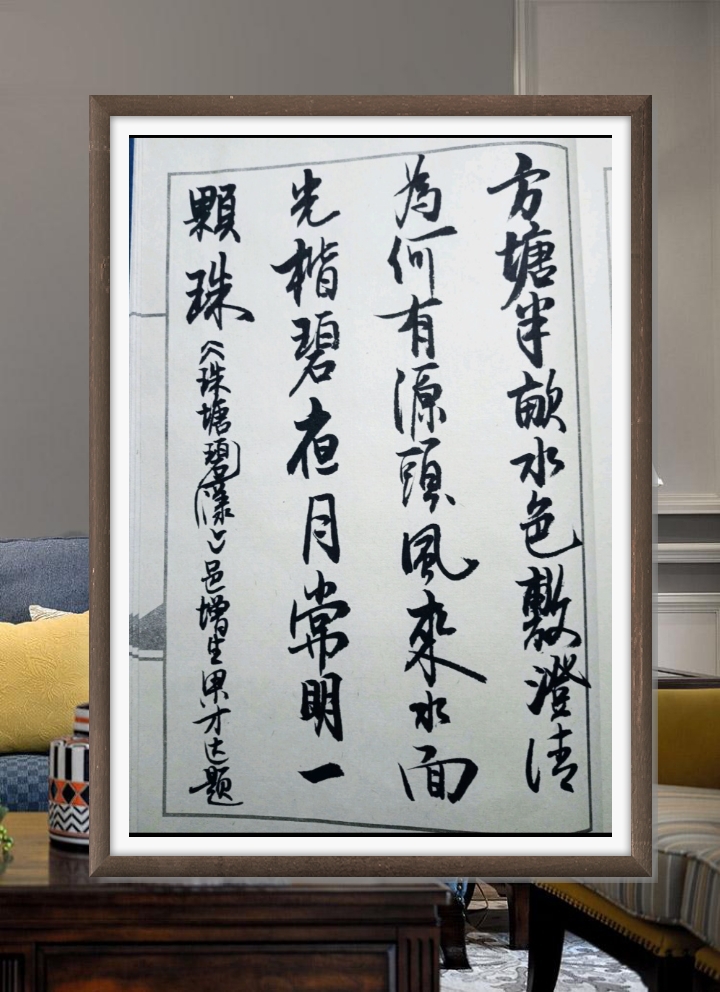 方塘半畝水色敷澄清
為何有源頭風來水面
光楷碧夜月常明一
顆珠《珠塘碧漾》邑增生田才达題